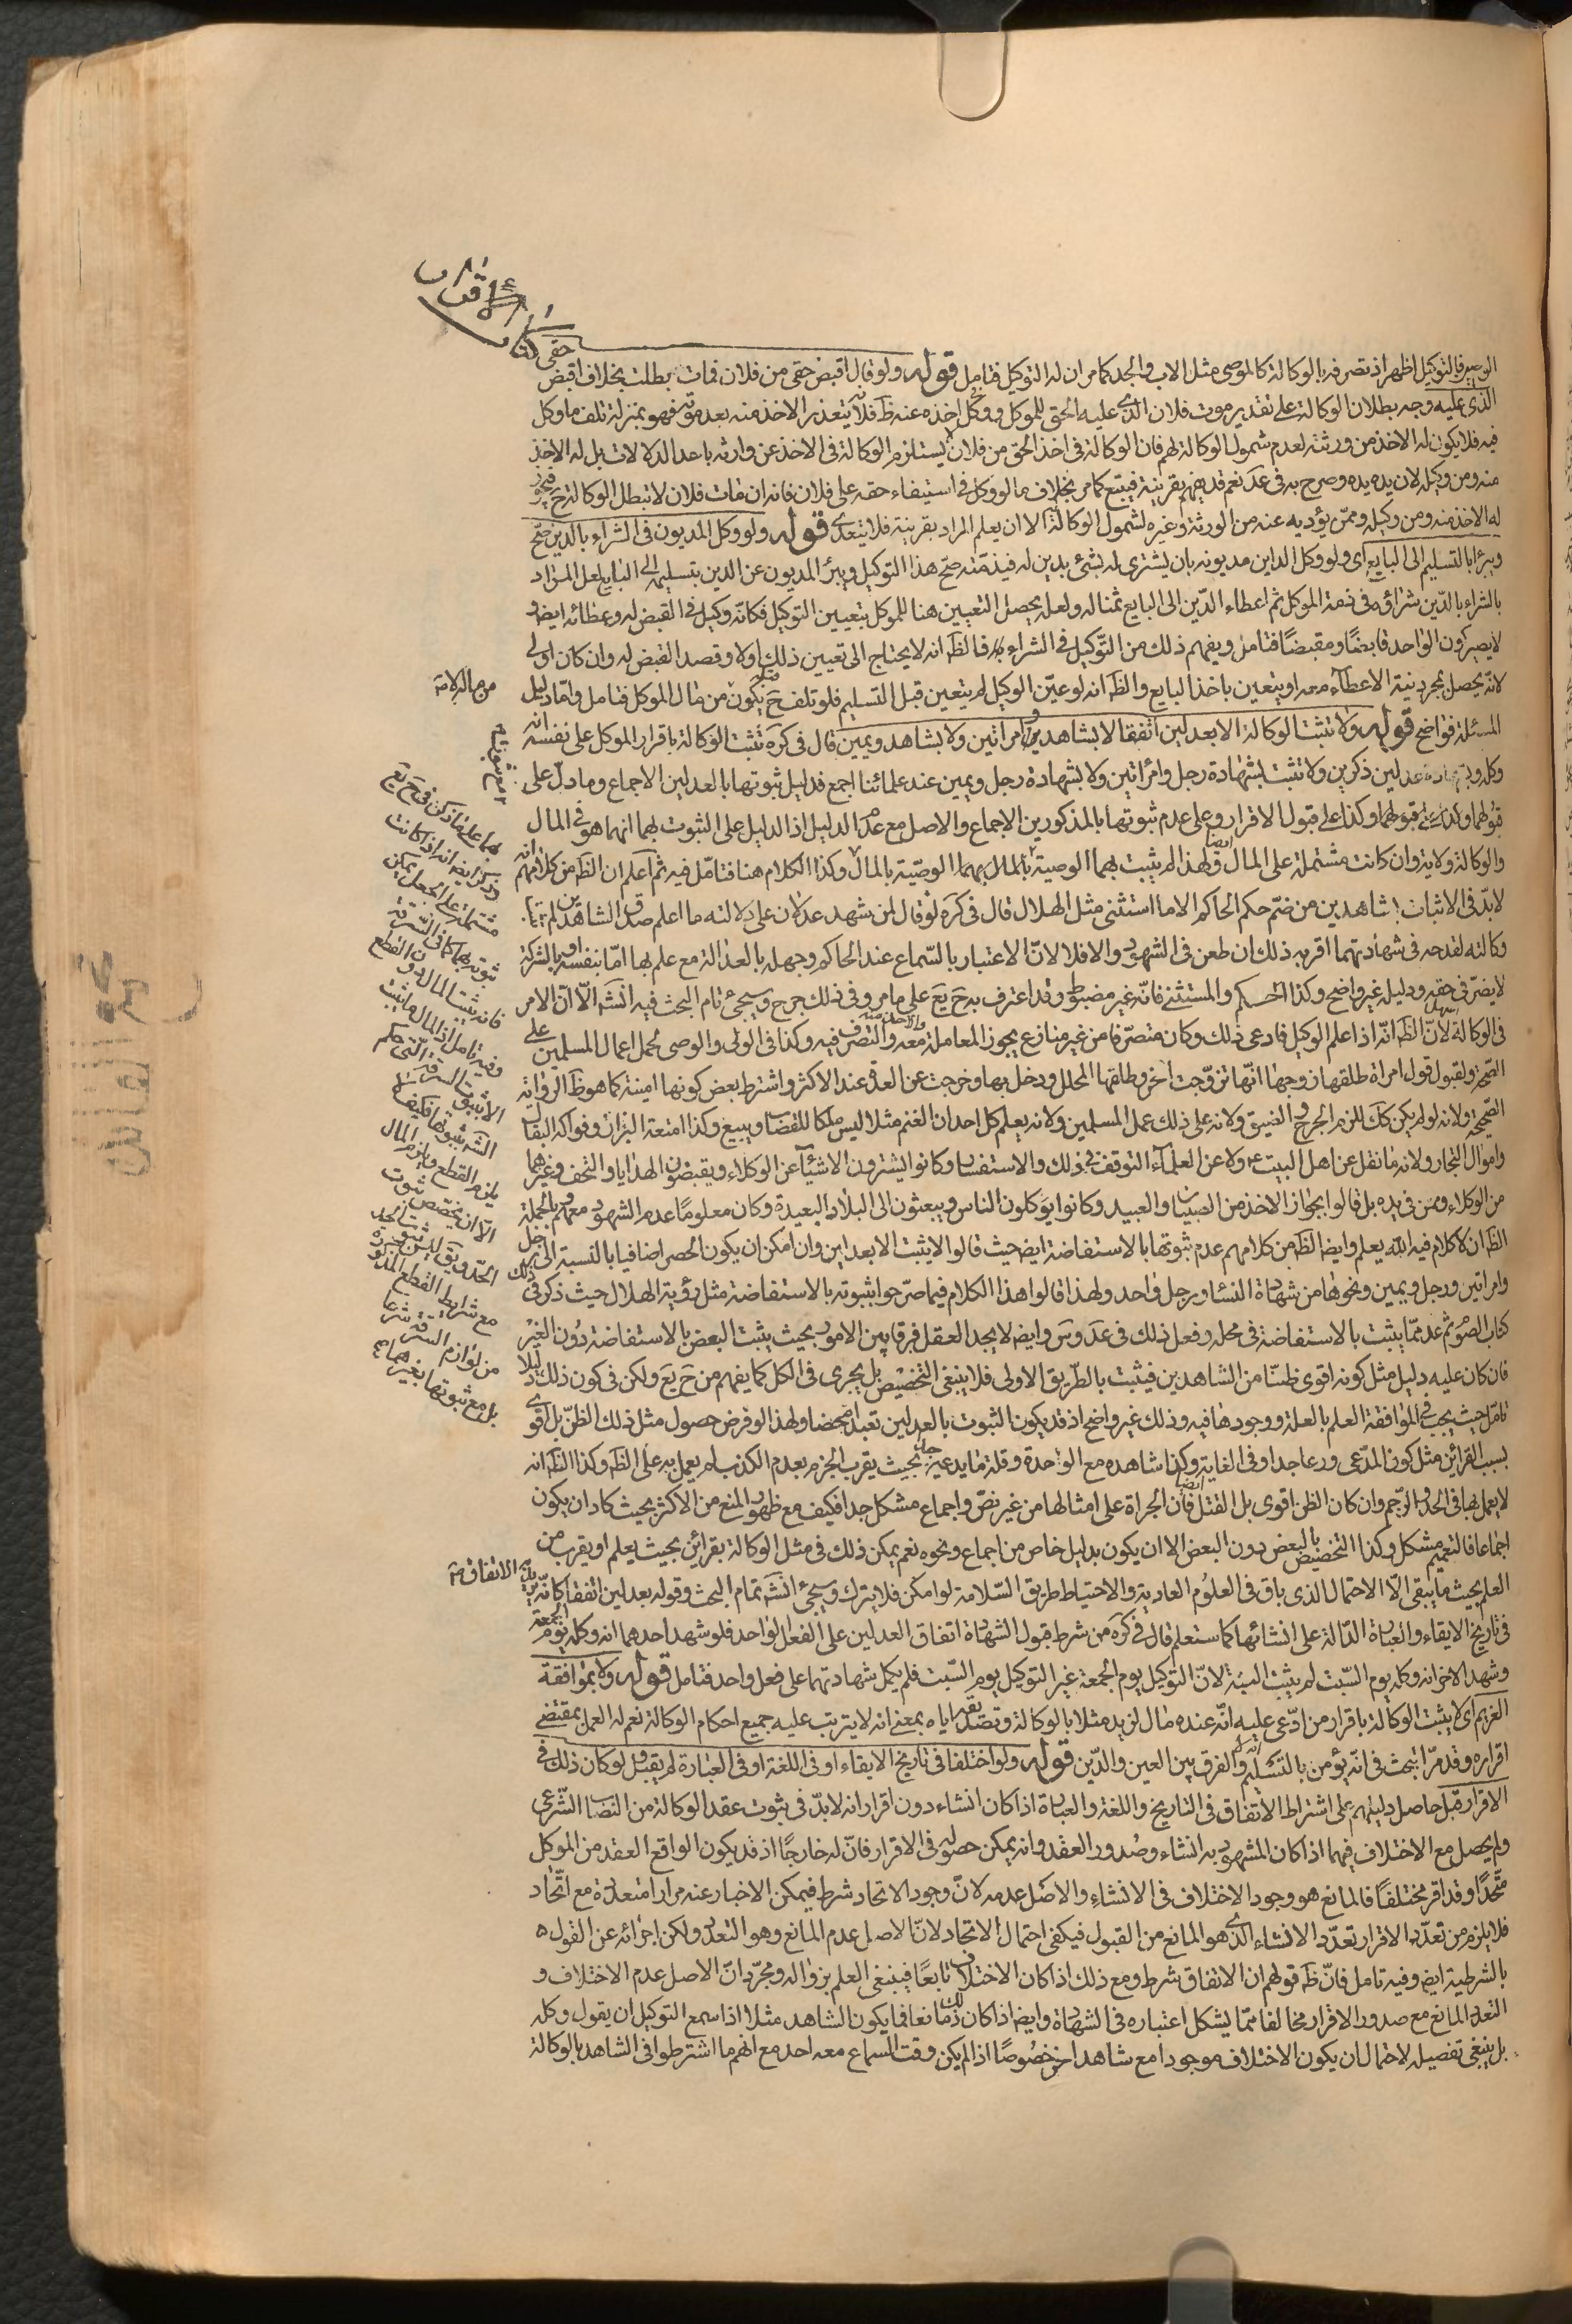 كتاب الاقرار
الوصي فالتوكيل اظهر اذ تصرفه بالوكالة كالموصي مثل الاب والجد كما مر ان له التوكيل فتامل قوله ولو قال اقبض حقي من فلان فمات بطلت بخلاف اقبض حقي
الذي عليه وجه بطلان الوكالة على تقدير موت فلان الذي عليه الحق للموكل ووكل اخذه عنه ظ فلانه يتعذر الاخذ منه بعد موته فهو بمنزلة تلف ما وكل
فيه فلا يكون له الاخذ من ورثته لعدم شمول الوكالة لهم فان الوكالة في اخذ الحق من فلان لا يستلزم الوكالة في الاخذ عن وارثه باحد الدلالات بل له الاخذ
منه ومن وكيله لان يده يده وصرح به في عد نعم قد يفهم بقرينة فيتبع كما مر بخلاف ما لو وكل في استيفاء حقه على فلان فانه ان مات فلان لا تبطل الوكالة ح فيجوز
له الاخذ منه ومن وكيله وممن يؤديه عنه من الورثة وغيره لشمول الوكالة الا ان يعلم المراد بقرينة فلا يتعدى قوله ولو وكل المديون في الشراء بالدين صح
ويبرأ بالتسليم الى البايع اى ولو وكل الداين مديونه بان يشترى له بشئ بدين له في ذمته صح هذا التوكيل ويبرأ المديون عن الدين بتسليمه الى البايع لعل المراد
بالشراء بالدين شراؤه في ذمة الموكل ثم اعطاء الدين الى البايع ثمنا له ولعله يحصل التعيين هنا للموكل بتعيين التوكيل فكانه وكيل في القبض له وعطائه ايض و
لا يصير كون الواحد قابضا ومقبضا فتامل ويفهم ذلك من التوكيل في الشراء به فالظ انه لا يحتاج الى تعيين ذلك اولا وقصد القبض له وان كان اولى
لانه يحصل بمجرد نية الاعطاء معه او يتعين باخذ البايع والظ انه لو عين الوكيل لم يتعين قبل التسليم فلو تلف ح يكون من مال الموكل فتامل واما دليل
من ماله لا منه
المسئلة فواضح قوله ولا تثبت الوكالة الا بعدلين اتفقا لا بشاهد وامراتين ولا بشاهد ويمين قال في كره تثبت الوكالة باقرار الموكل على نفسه انه
وكله وبشهادة عدلين ذكرين ولا تثبت بشهادة رجل وامراتين ولا بشهادة رجل ويمين عند علمائنا اجمع فدليل ثبوتها بالعدلين الاجماع وما دل على
قبولهما وكذا على قبول الاقرار وعلى عدم ثبوتها بالمذكورين الاجماع والاصل مع عدم الدليل اذ الدليل على الثبوت بهما انما هو في المال
والوكالة ولاية وان كانت مشتملة على المال ولهذا لم يثبت بهما الوصية بالمال وكذا الكلام هنا فتامل فيه ثم اعلم ان الظ من كلامهم انه
بهما على ما ذكره في ح يع
وذكر ايض انه اذا كانت
مشتملة على الجعل يمكن
ثبوته بهما كما في السرقة
فانه يثبت المال دون القطع
وفيه تامل اذ المال ما ثبت
الا بثبوت السرقة التي حكم
الشه بثبوتها فكيف لا
يلزم القطع ويلزم المال
الا ان يخصص ثبوت
الحد ويق ليس ثبوت الحد
مع شرايط القطع المذكورة
من لوازم السرقة شرعا
بل مع ثبوتها بغيرهما
لابد في الاثبات بشاهدين من ضم حكم الحاكم الا ما استثنى مثل الهلال قال في كره لو قال لمن شهد عدلان على دلالته ما اعلم صدق الشاهدين لم يثبت
وكالته لقدحه في شهادتهما اقربه ذلك ان طعن في الشهود والا فلا لان الاعتبار بالسماع عند الحاكم وجهله بالعدالة مع علم بها اما بنفسه او بالتزكية
لا يضر في حقه ودليله غير واضح وكذا الحكم والمستثنى فانه غير مضبوط وقد اعترف به ح يع على ما مر وفي ذلك حرج وسيجئ تمام البحث فيه انشه الا ان الامر
في الوكالة لان الظ انه اذا علم الوكيل فادعى ذلك وكان متصرفا من غير منازع يجوز المعاملة معه والتصرف فيه وكذا في الولى والوصي لحمل اعمال المسلمين على
الصحة ولقبول قول امراة طلقها زوجها انها تزوجت اخر وطلقها المحلل ودخل بها وخرجت عن العدة عند الاكثر واشترط بعض كونها امينة كما هو ظ الرواية
الصحيحة ولانه لو لم يكن كك للزم الحرج والضيق ولانه على ذلك عمل المسلمين ولانه يعلم كل احد ان الغنم مثلا ليس ملكا للقصاب ويبيع وكذا امتعة البزاز وفواكه البقال
واموال التجار ولانه ما نقل عن اهل البيت ع ولا عن العلماء التوقف في ذلك والاستفسار وكانوا يشترون الاشياء عن الوكلاء ويقبضون الهدايا والتحف وغيرهما
من الوكلاء ومن في يده بل قالوا بجواز الاخذ من الصبيان والعبيد وكانوا يوكلون الناس ويبعثون الى البلاد البعيدة وكان معلوما عدم الشهود معهم بالجملة
الظ ان لا كلام فيه الله يعلم وايض الظ من كلامهم عدم ثبوتها بالاستفاضة ايض حيث قالوا لا يثبت الا بعدلين وان امكن ان يكون الحصر اضافيا بالنسبة الى رجل
وامراتين ورجل ويمين ونحوها من شهادة النساء ورجل واحد ولهذا قالوا هذا الكلام فيما صرحوا بثبوته بالاستفاضة مثل رؤية الهلال حيث ذكر في ذلك
كتاب الصوم ثم عد مما يثبت بالاستفاضة في محله وفعل ذلك في عد وس وايض لا يجد العقل فرقا بين الامور بحيث يثبت البعض بالاستفاضة دون الغير
فان كان عليه دليل مثل كونه اقوى ظنا من الشاهدين فيثبت بالطريق الاولى فلا ينبغي التخصيص بل يجرى في الكل كما يفهم من ح يع ولكن في كون ذلك دليلا
تامل حيث يجب في الموافقة العلم بالعلة ووجودها فيه وذلك غير واضح اذ قد يكون الثبوت بالعدلين تعبدا محضا ولهذا لو فرض حصول مثل ذلك الظن بل اقوى
بسبب القرائن مثل كون المدعى ورعا جدا وفي الغاية وكذا شاهده مع الواحدة وقلة ما يدعيه بحيث يقرب الجزم بعدم الكذب لم يعمل به على الظ وكذا الظ انه
لا يعمل بها في الحدود والرجم وان كان الظن اقوى بل القتل ايضا فان الجراة على امثالها من غير نص واجماع مشكل جدا فكيف مع ظهور المنع من الاكثر بحيث كاد ان يكون
اجماعا فالتعميم مشكل وكذا التخصيص بالبعض دون البعض الا ان يكون بدليل خاص من اجماع ونحوه نعم يمكن ذلك في مثل الوكالة بقرائن بحيث يعلم او يقرب من
العلم بحيث ما يبقى الا الاحتمال الذى باق في العلوم العادية والاحتياط طريق السلامة لو امكن فلا يترك وسيجئ انشه تمام البحث وقوله بعدلين اتفقا كانه يريد الاتفاق
في تاريخ الايقاع والعبارة الدالة على انشائها كما ستعلم قال في كره من شرط قبول الشهادة اتفاق العدلين على الفعل الواحد فلو شهد احدهما انه وكله يوم الجمعة
وشهد الاخر انه وكله يوم السبت لم يثبت البينة لان التوكيل يوم الجمعة غير التوكيل يوم السبت فلم يكمل شهادتهما على فعل واحد فتامل قوله ولا بموافقة
الغريم اى لا يثبت الوكالة باقرار من ادعى عليه انه عنده مال لزيد مثلا بالوكالة وتصديقه اياه بمعنى انه لا يترتب عليه جميع احكام الوكالة نعم له العمل بمقتضى
اقراره وقد مر البحث في انه يؤمن بالتسليم ام لا والفرق بين العين والدين قوله ولو اختلفا في تاريخ الايقاع او في اللغة او في العبارة لم يقبل ولو كان ذلك في
الاقرار قبل حاصل دليلهم على اشتراط الاتفاق في التاريخ واللغة والعبارة اذا كان انشاء دون اقرار انه لابد في ثبوت عقد الوكالة من النصاب الشرعي
ولم يحصل مع الاختلاف فيهما اذا كان المشهود به انشاء وصدور العقد وانه يمكن حصوله في الاقرار فان له خارجا اذ قد يكون الواقع العقد من الموكل
متحدا وقد اقر مختلفا فالمانع هو وجود الاختلاف في الانشاء والاصل عدمه لان وجود الاتحاد شرط فيمكن الاخبار عنه مرارا متعددة مع اتحاد
فلا يلزم من تعدد الاقرار تعدد الانشاء الذى هو المانع من القبول فيكفى احتمال الاتحاد لان الاصل عدم المانع وهو التعدد ولكن اجرائه عن القول
بالشرطية ايض وفيه تامل فان ظ قولهم ان الاتفاق شرط ومع ذلك اذا كان الاختلاف تابعا فينبغي العلم بزواله ومجرد ان الاصل عدم الاختلاف و
التعدد المانع مع صدور الاقرار مخالفا مما يشكل اعتباره في الشهادة وايض اذا كان ذلك مانعا فما يكون الشاهد مثلا اذا سمع التوكيل ان يقول وكله
بل ينبغي تفصيله لاحتمال ان يكون الاختلاف موجودا مع شاهد اخر خصوصا اذا لم يكن وقت السماع معه احد مع انهم ما اشترطوا في الشاهد بالوكالة